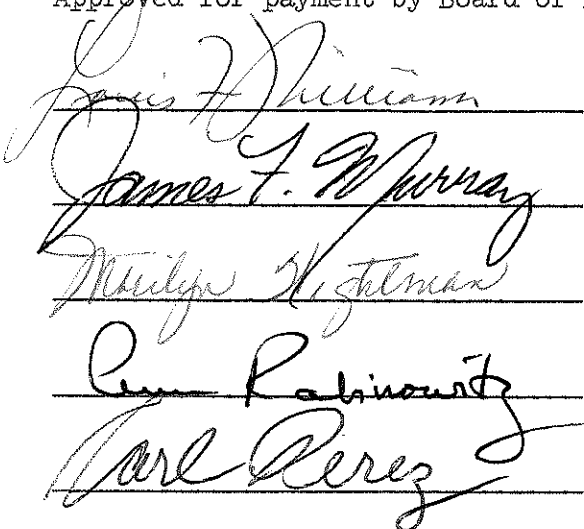 Approved for payment by Board of
Louis F. Williams
James F. Murray
Marilyn Wightman
Rabinowitz
Karl Perez